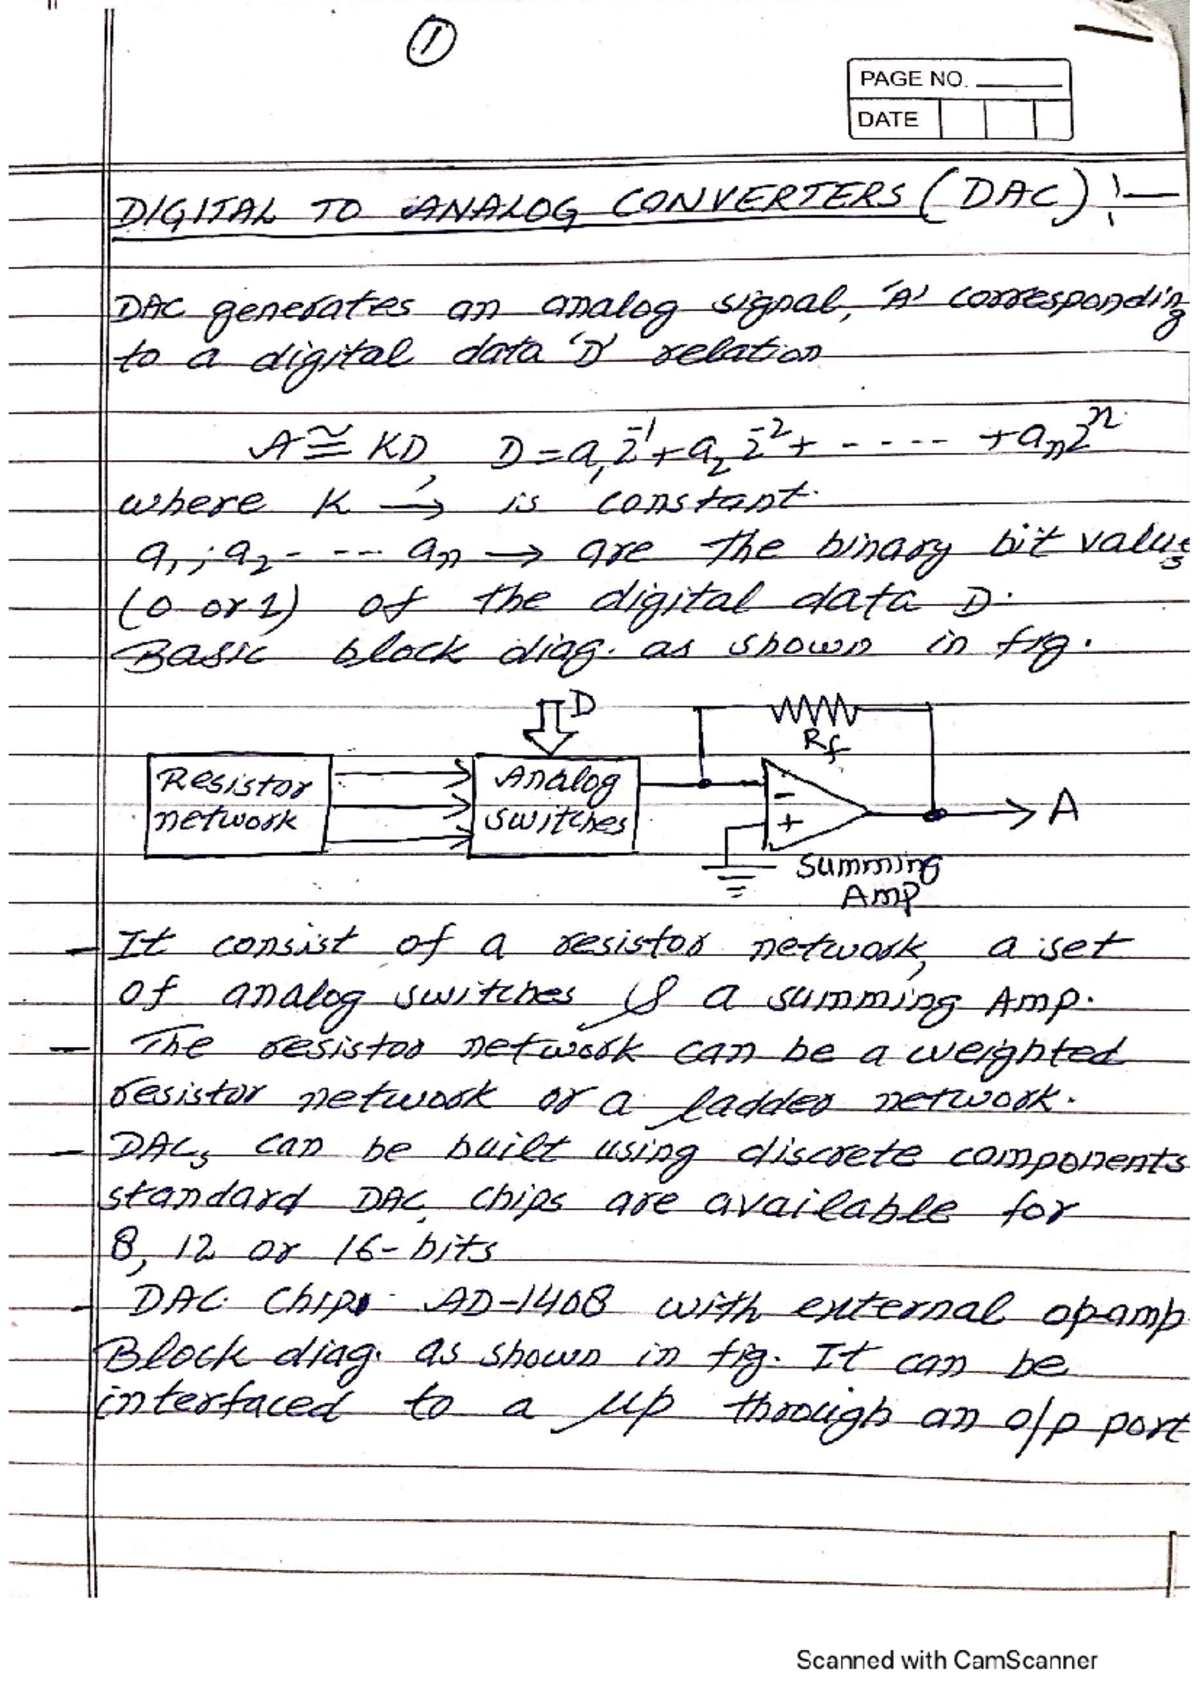 ①
PAGE NO.
DATE
DIGITAL TO ANALOG CONVERTERS (DAC) :-
DAC generates an analog signal, 'A' correspondin
g
to a digital data 'D' relation
A ≅ KD, D = a₁2⁻¹ + a₂2⁻² + - - - - - + aₙ2ⁿ
where K → is constant.
a₁, a₂ - - - - aₙ → are the binary bit value
s
(0 or 1) of the digital data D.
Basic block diag. as shown in fig.
D
Rf
Resistor
network
Analog
switches
-
+
A
Summing
Amp
- It consist of a resistor network, a set
of analog switches & a summing Amp.
- The resistor network can be a weighted
resistor network or a ladder network.
- DACs can be built using discrete components
standard DAC chips are available for
8, 12 or 16-bits
- DAC chip AD-1408 with external opamp.
Block diag. as shown in fig. It can be
interfaced to a μp through an o/p port
Scanned with CamScanner